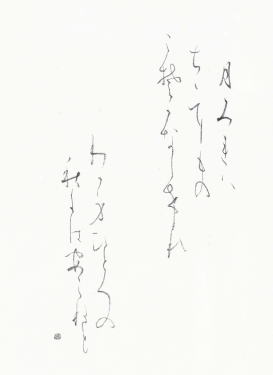 月みれは
ちゝにもの
こそかなしけれ
わか身ひとつの
秋にはあらねと